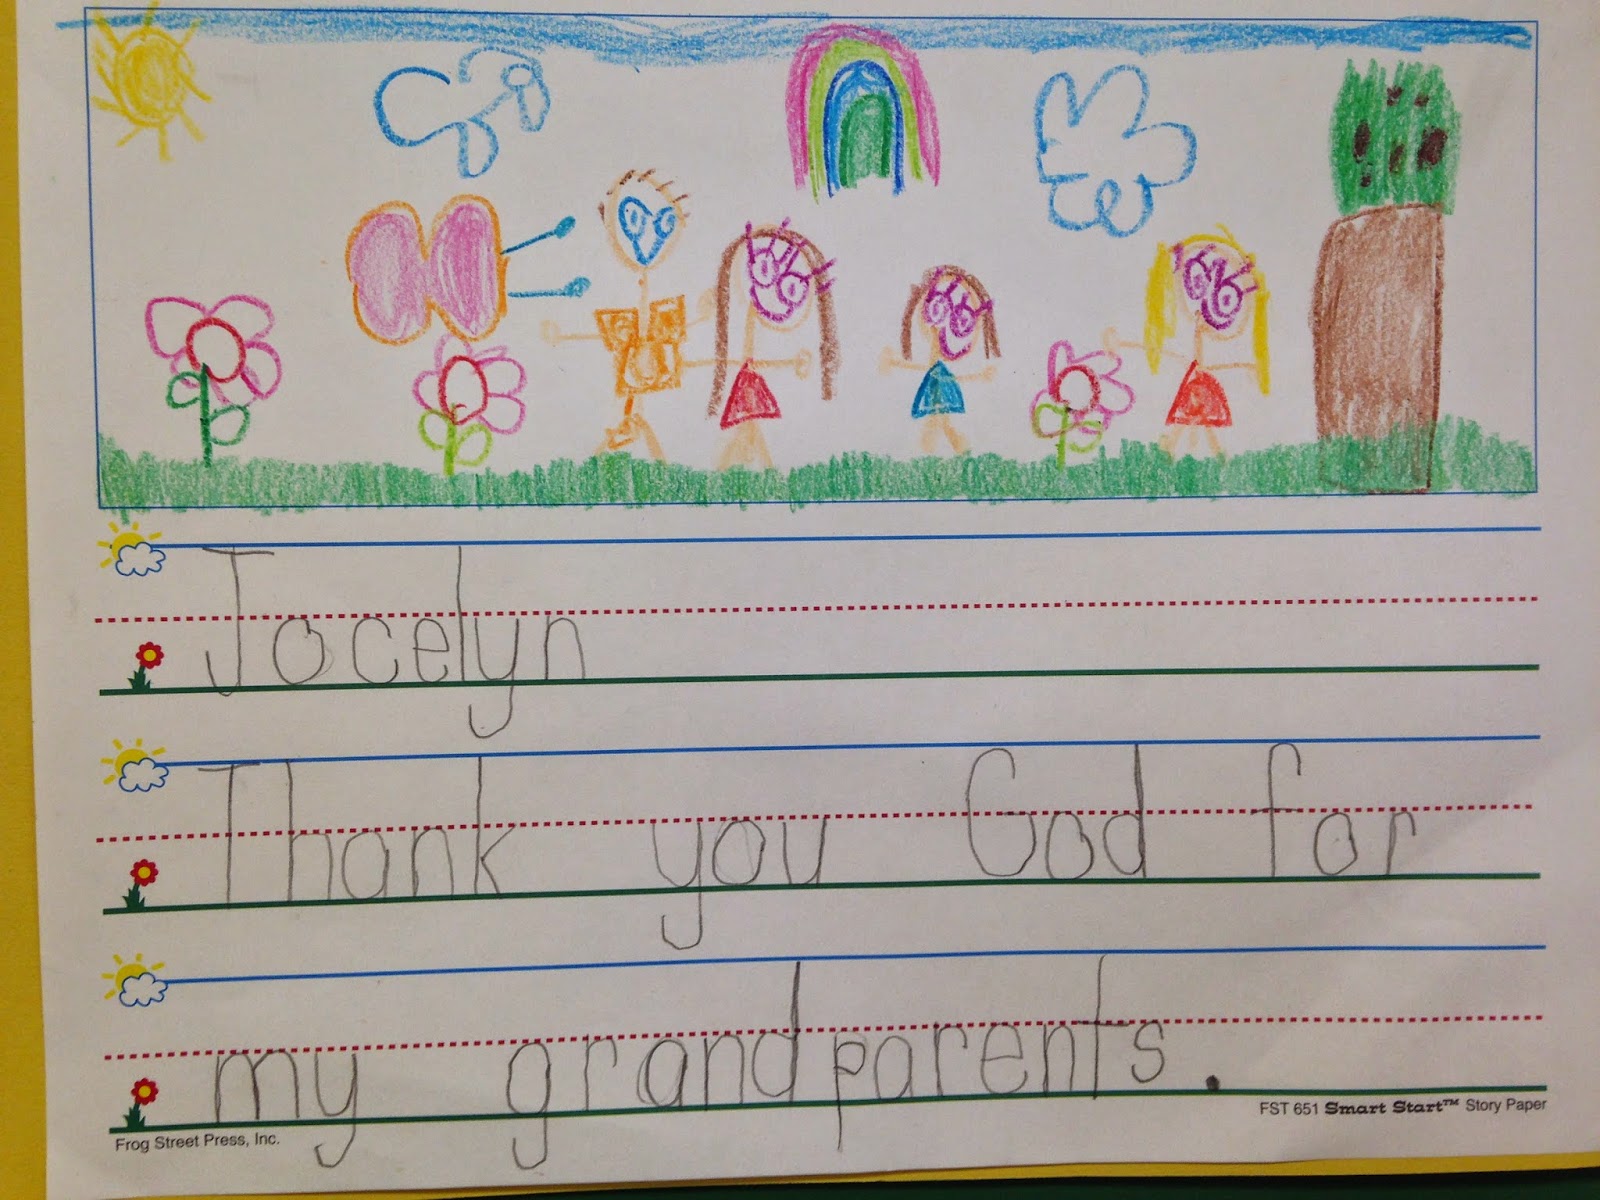 Jocelyn
Thank you God for
my grandparents.
FST 651 Smart Start™ Story Paper
Frog Street Press, Inc.